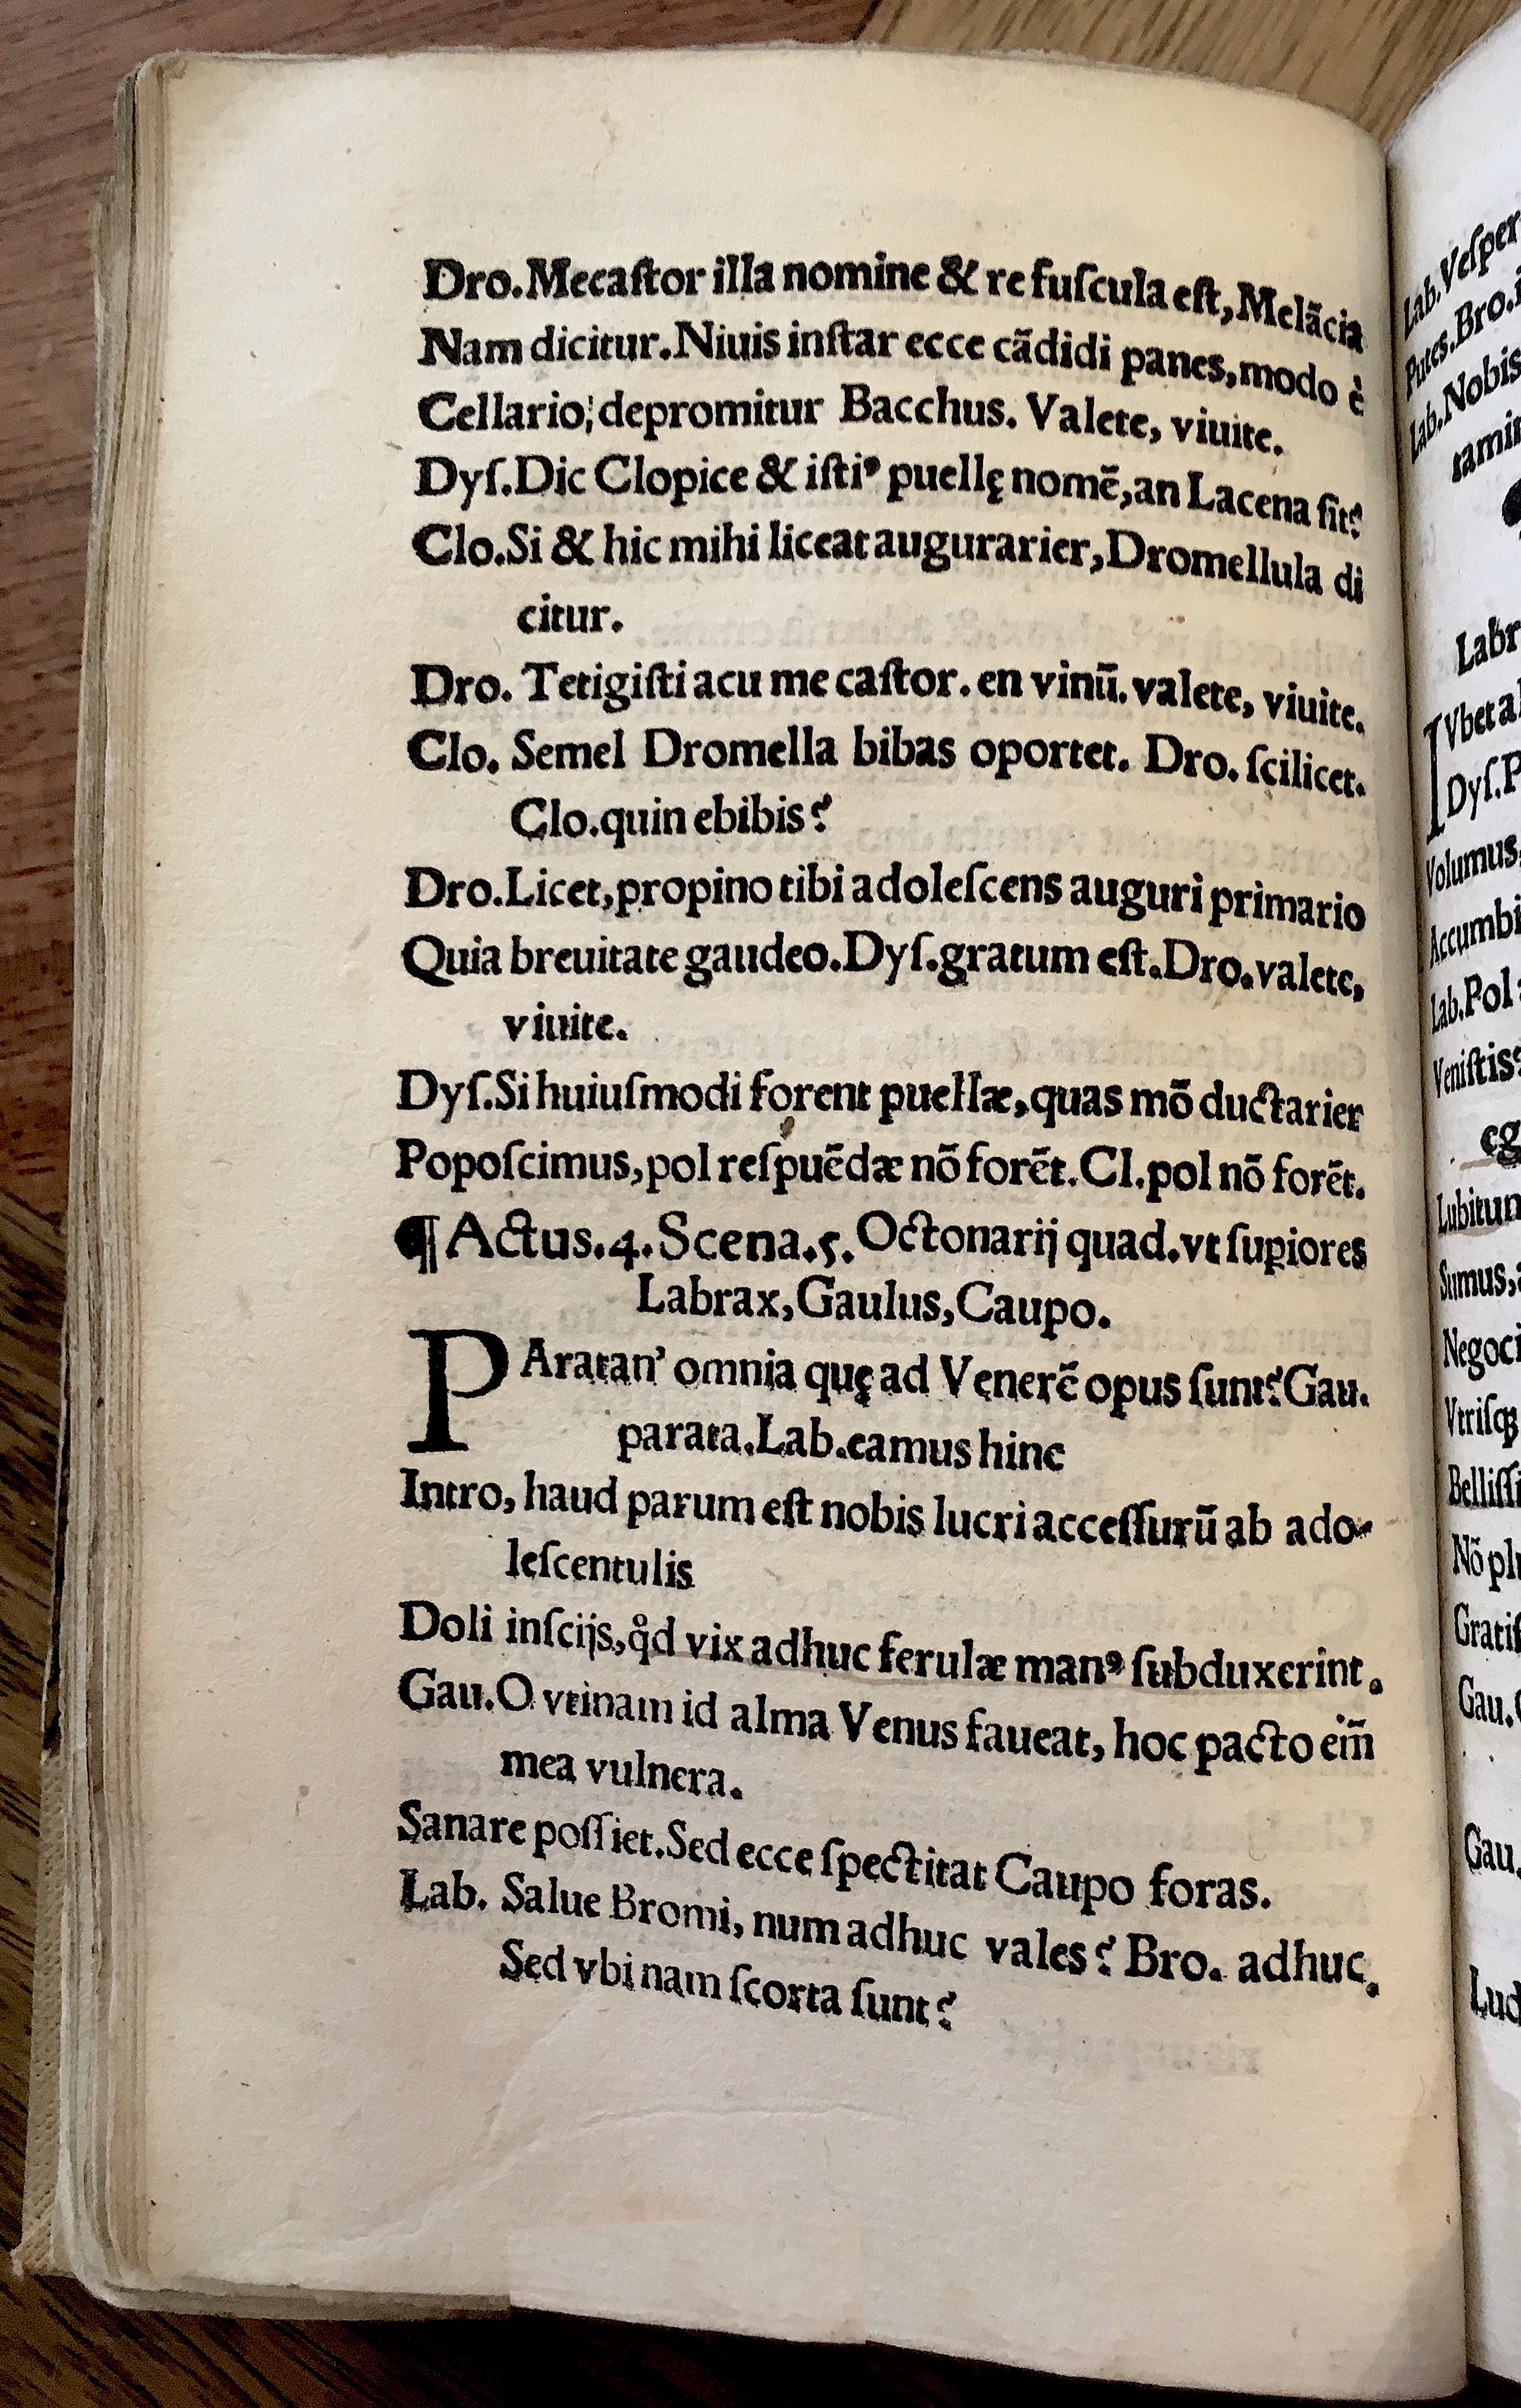 Dro.Mecaſtor illa nomine & re fuſcula eſt,Melãcia
Nam dicitur.Niuis inſtar ecce cãdidi panes,modo è
Cellario,depromitur Bacchus. Valete, viuite.
Dyſ.Dic Clopice & iſtiꝰ puellę nomẽ,an Lacena ſit?
Clo.Si & hic mihi liceat augurarier,Dromellula di
citur.
Dro. Tetigiſti acu me caſtor. en vinũ. valete, viuite.
Clo. Semel Dromella bibas oportet. Dro. ſcilicet.
Clo.quin ebibis?
Dro.Licet,propino tibi adoleſcens auguri primario
Quia breuitate gaudeo.Dyſ.gratum eſt.Dro.valete,
viuite.
Dyſ.Si huiuſmodi forent puellæ,quas mõ ductarier
Popoſcimus,pol reſpuẽdæ nõ forẽt.Cl.pol nõ forẽt.
¶ Actus.4.Scena.5.Octonarij quad.vt ſuꝑiores
Labrax,Gaulus,Caupo.
PAratan’ omnia quę ad Venerẽ opus ſunt?Gau.
parata.Lab.eamus hinc
Intro, haud parum eſt nobis lucri acceſſurũ ab ado-
leſcentulis
Doli inſcijs,qͦd vix adhuc ferulæ manꝰ ſubduxerint.
Gau.O vtinam id alma Venus faueat, hoc pacto em̃
mea vulnera.
Sanare poſſiet.Sed ecce ſpectitat Caupo foras.
Lab. Salue Bromi, num adhuc vales? Bro. adhuc.
Sed vbi nam ſcorta ſunt?
Lab.Veſper
Putes.Bro.i
Lab.Nobis
ramin
Labr
IVbet al
Dyſ.P
Volumus,
Accumbi
Lab.Pol
Veniſtis?
eg
Lubitum
Sumus,
Negoci
Vtriſqꝫ
Belliſſi
Nõ plu
Gratiſ
Gau.
Gau.
Lud